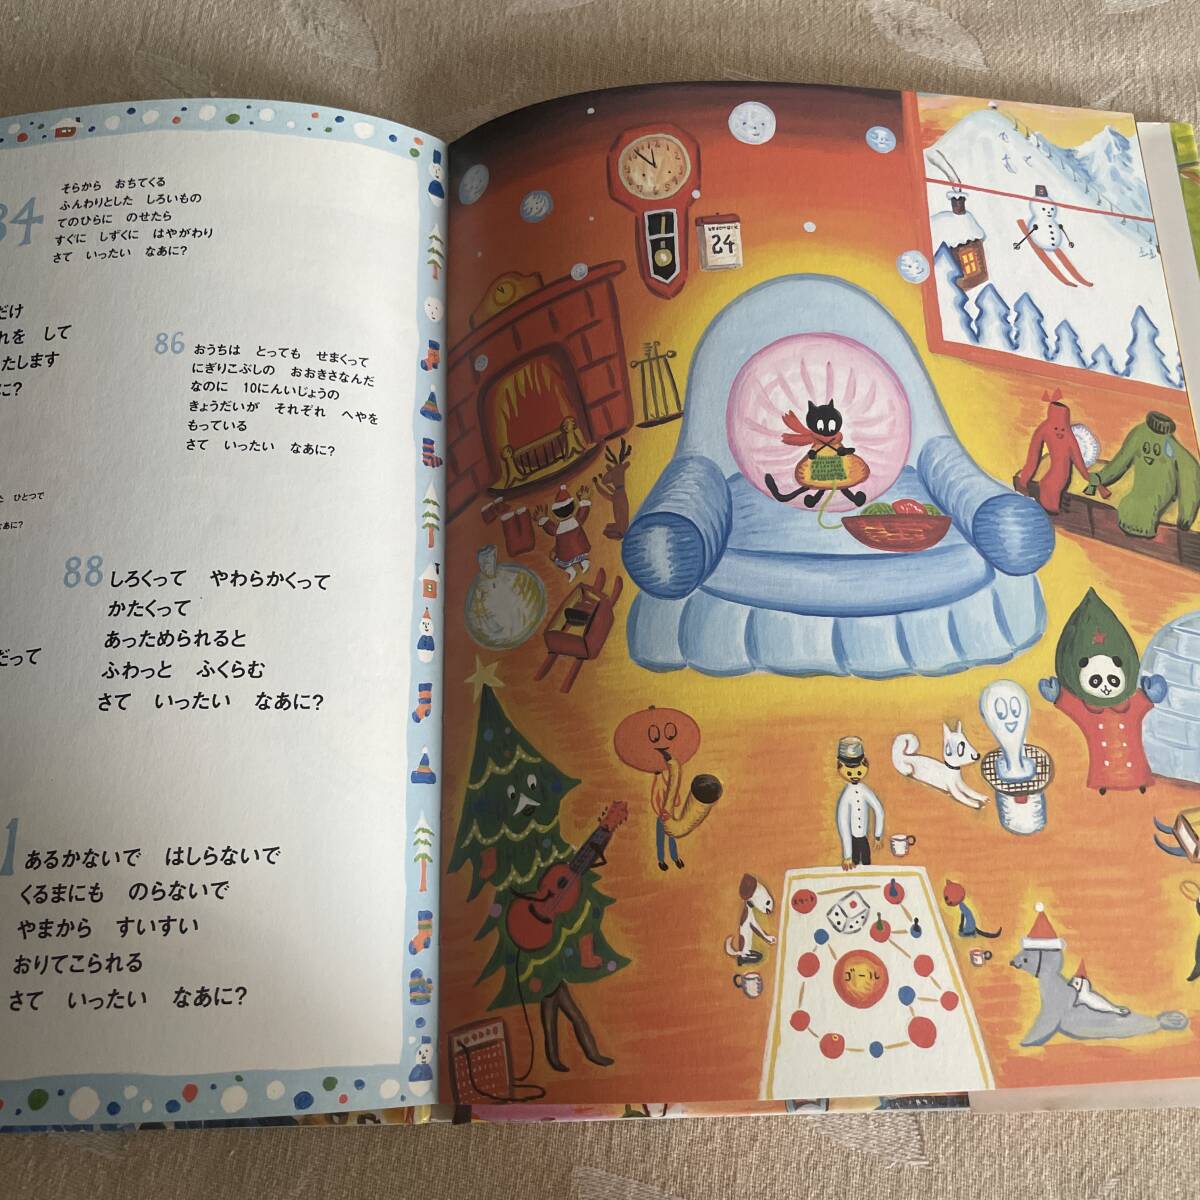 84
そらから　おちてくる
ふんわりとした　しろいもの
てのひらに　のせたら
すぐに　しずくに　はやがわり
さて　いったい　なあに?
だけ
れを　して
たします
に?
86
おうちは　とっても　せまくって
にぎりこぶしの　おおきさなんだ
なのに　10にんいじょうの
きょうだいが　それぞれ　へやを
もっている
さて　いったい　なあに?
ひとつで
なあに?
88
しろくって　やわらかくって
かたくって
あっためられると
ふわっと　ふくらむ
さて　いったい　なあに?
だって
1
あるかないで　はしらないで
くるまにも　のらないで
やまから　すいすい
おりてこられる
さて　いったい　なあに?
24
スタート
ゴール